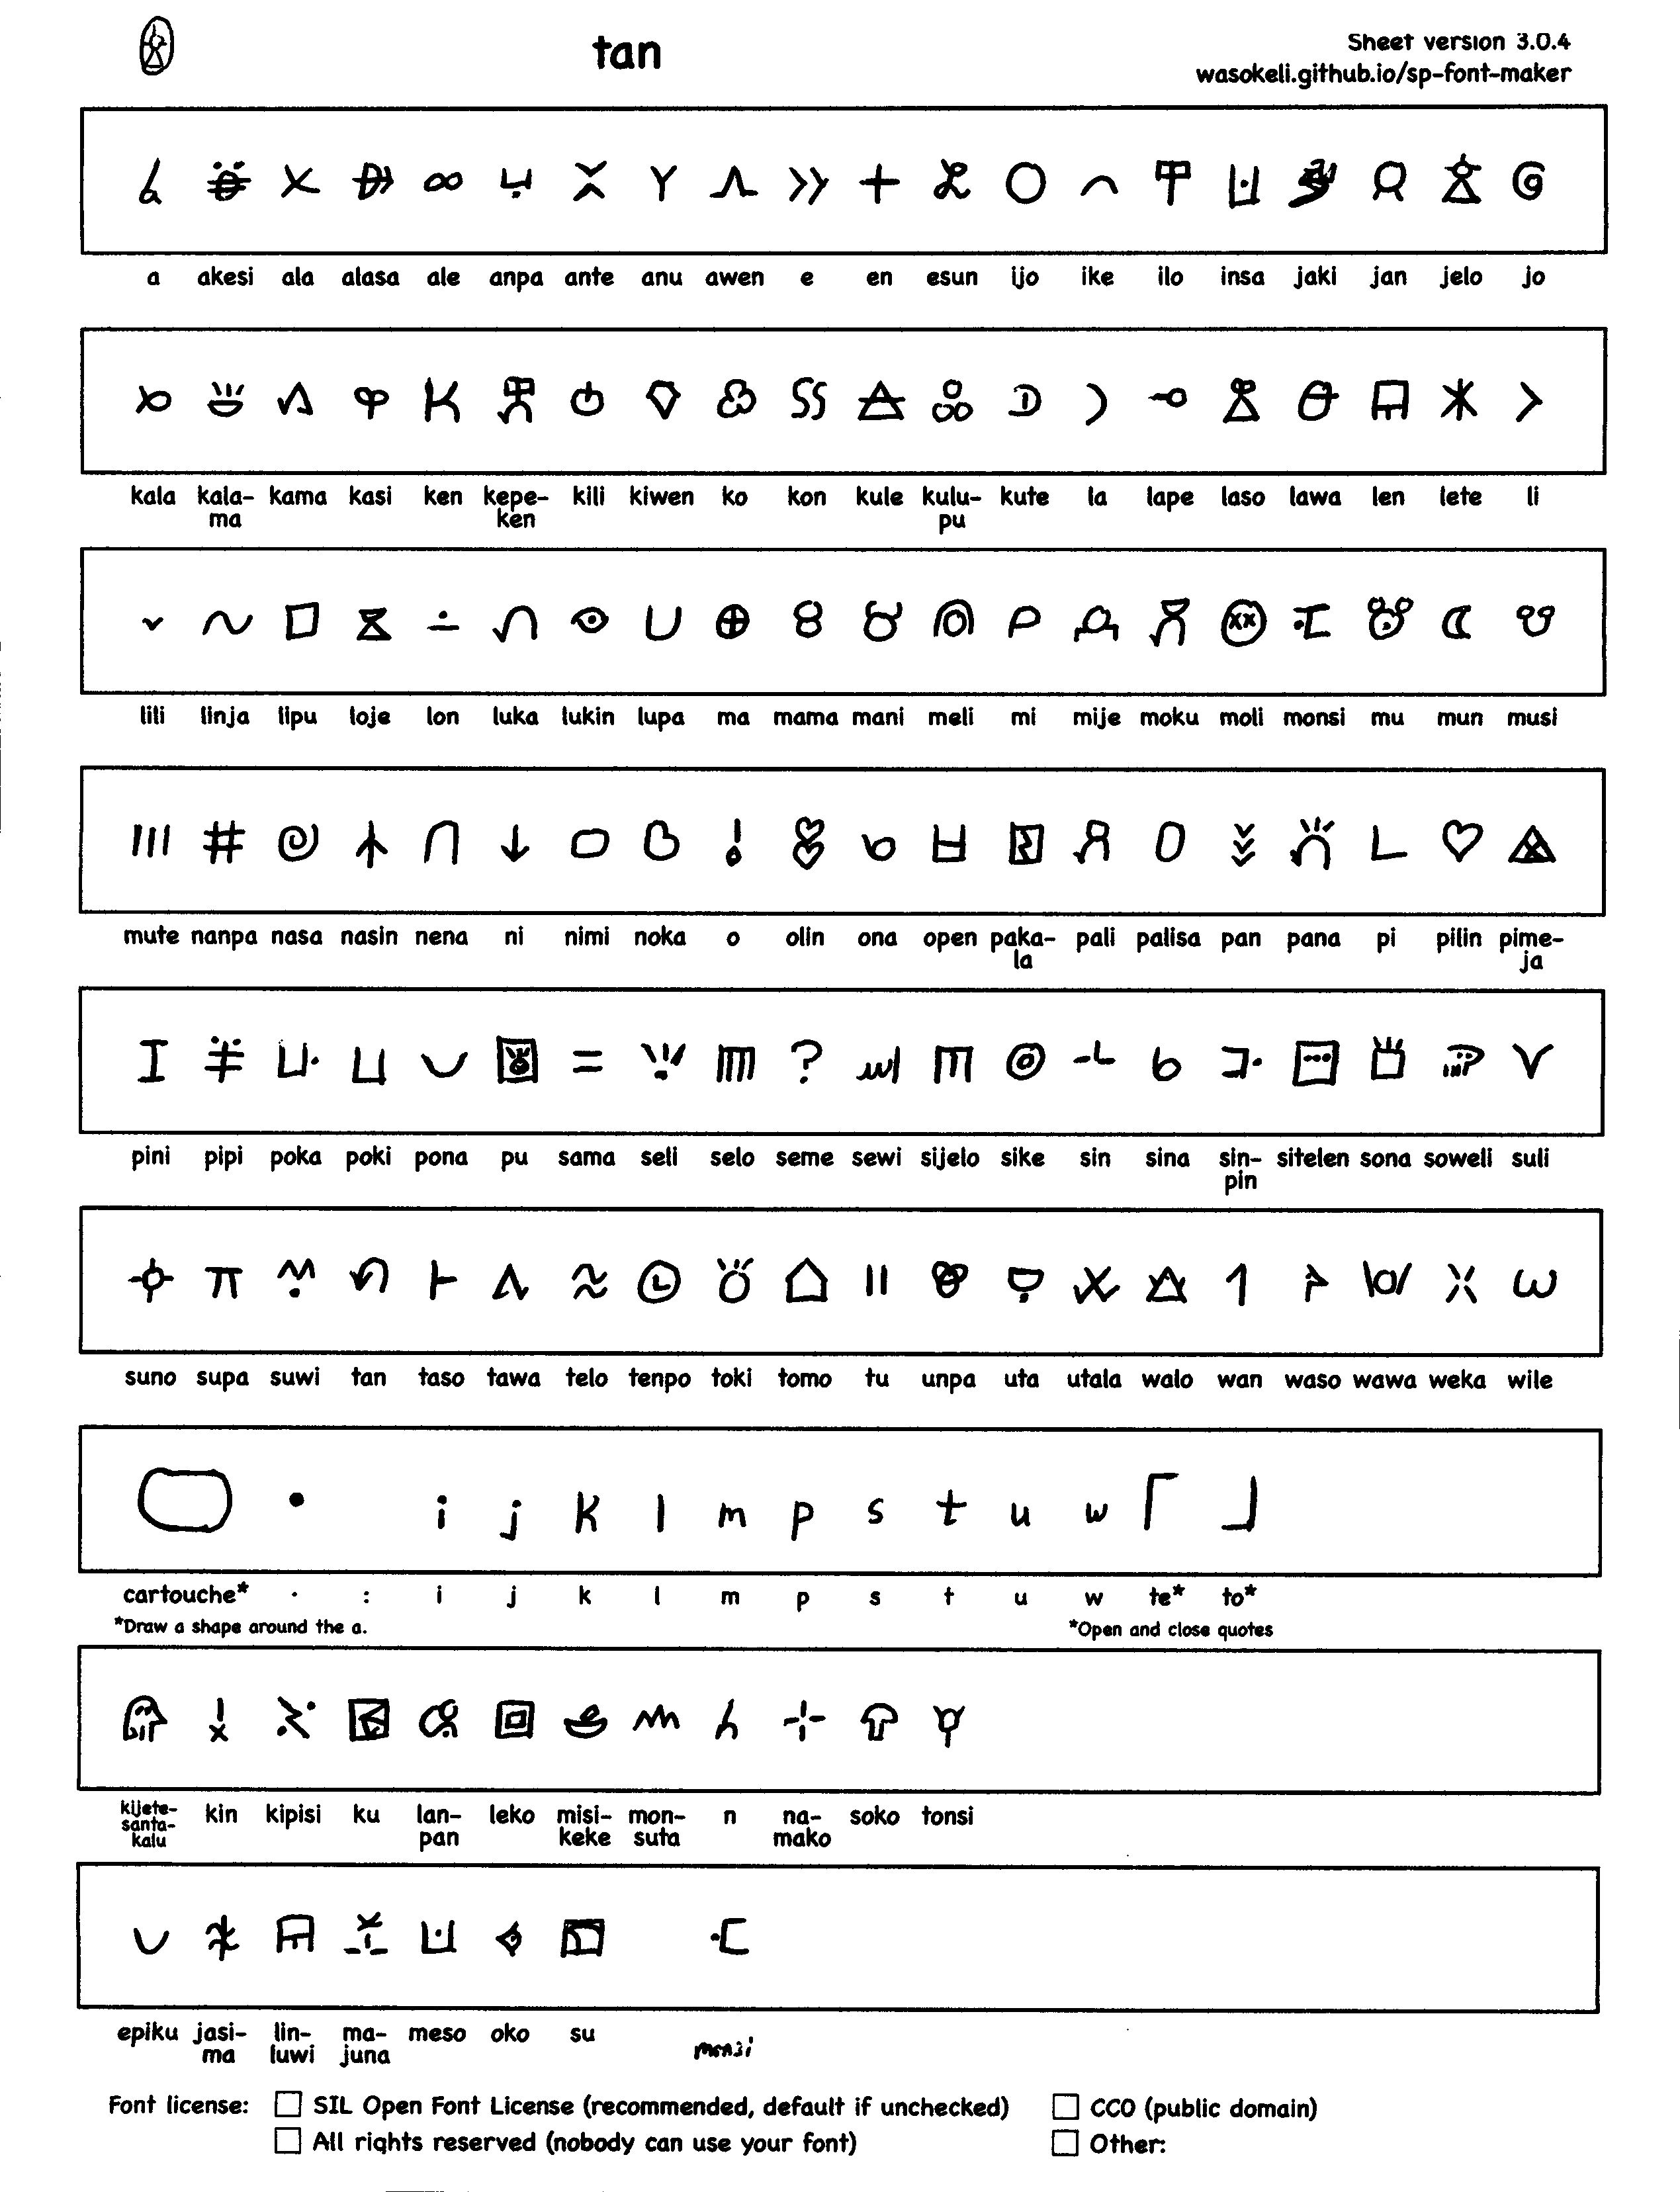 tan
Sheet version 3.0.4
wasokeli.github.io/sp-font-maker
a akesi ala alasa ale anpa ante anu awen e en esun ijo ike ilo insa jaki jan jelo jo
kala kala- kama kasi ken kepe- kili kiwen ko kon kule kulu- kute la lape laso lawa len lete li
ma ken pu
lili linja lipu loje lon luka lukin lupa ma mama mani meli mi mije moku moli monsi mu mun musi
mute nanpa nasa nasin nena ni nimi noka o olin ona open paka- pali palisa pan pana pi pilin pime-
la ja
pini pipi poka poki pona pu sama seli selo seme sewi sijelo sike sin sina sin- sitelen sona soweli suli
pin
suno supa suwi tan taso tawa telo tenpo toki tomo tu unpa uta utala walo wan waso wawa weka wile
i j k l m p s t u w
cartouche* · : i j k l m p s t u w te* to*
*Draw a shape around the a. *Open and close quotes
kijete- kin kipisi ku lan- leko misi- mon- n na- soko tonsi
santa- pan keke suta mako
kalu
epiku jasi- lin- ma- meso oko su
ma luwi juna monsi
Font license: SIL Open Font License (recommended, default if unchecked) CC0 (public domain)
All rights reserved (nobody can use your font) Other: